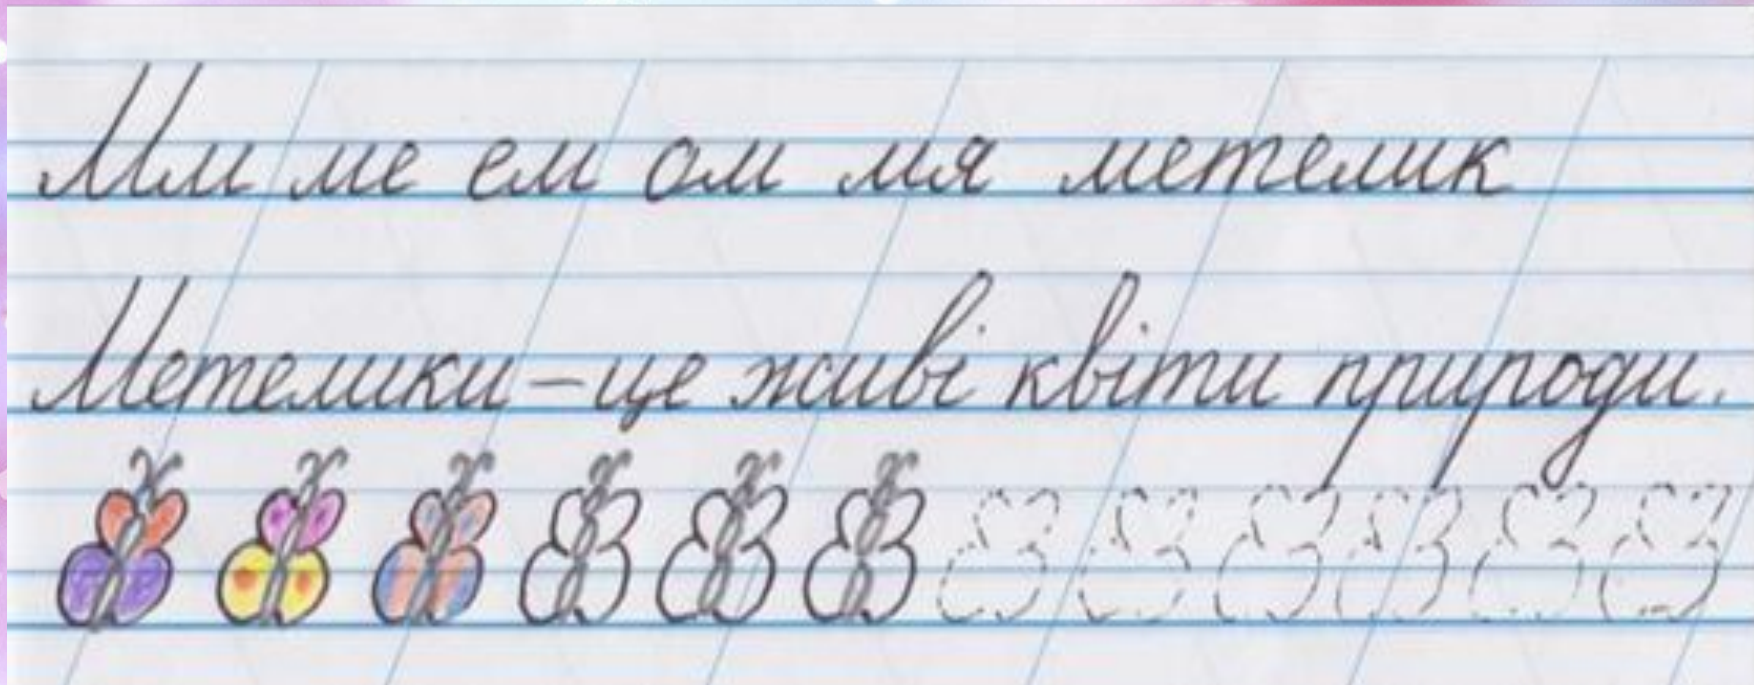 Мм ме ем ом мя метелик
Метелики – це живі квіти природи.